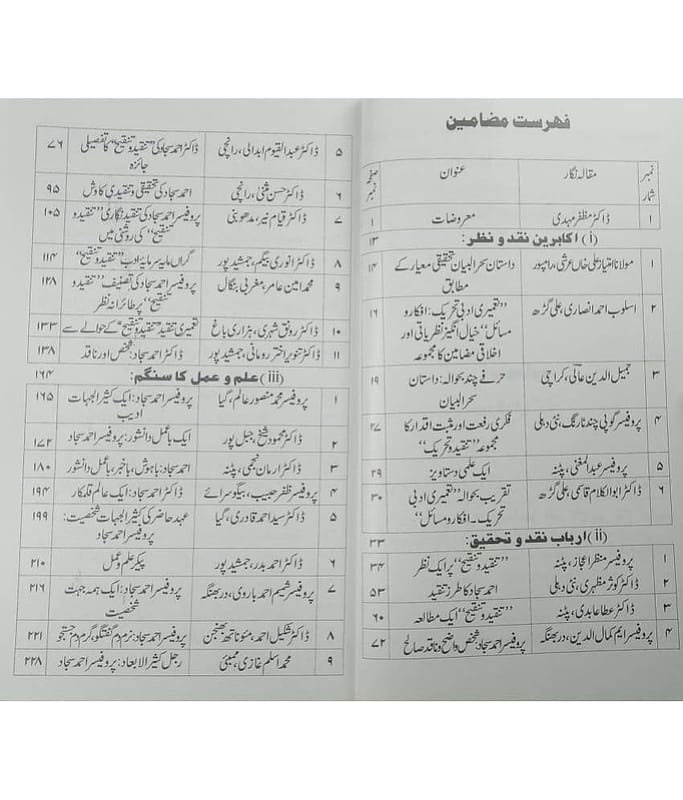 فہرست مضامین
نمبر شمار	مقالہ نگار	عنوان	صفحہ نمبر
۱	ڈاکٹر مظفر مہدی	معروضات	۱
(i) اکابرین نقد و نظر:	۱۳
۱	مولانا امتیاز علی خاں عرشی، رامپور	داستان سحر البیان تحقیقی معیار کے	۱۴
مطابق
۲	اسلوب احمد انصاری، علی گڑھ	”تعمیری ادبی تحریک: افکار و	۱۶
مسائل“ خیال انگیز نظریاتی اور
اخلاقی مضامین کا مجموعہ
۳	جمیل الدین عالی، کراچی	حرفے چند بحوالہ: داستان	۱۹
سحر البیان
۴	پروفیسر گوپی چند نارنگ، نئی دہلی	فکری رفعت اور مثبت اقدار کا	۲۷
مجموعہ ”تنقید و تحریک“
۵	پروفیسر عبد المغنی، پٹنہ	ایک علمی دستاویز	۲۹
۶	ڈاکٹر ابوالکلام قاسمی، علی گڑھ	تقریب بحوالہ ”تعمیری ادبی	۳۰
تحریک۔ افکار و مسائل“
(ii) ارباب نقد و تحقیق:	۳۳
۱	پروفیسر منظر اعجاز، پٹنہ	”تنقید و تنقیح“ پر ایک نظر	۳۴
۲	ڈاکٹر کوثر مظہری، نئی دہلی	احمد سجاد کا طرز تنقید	۵۳
۳	ڈاکٹر عطا عابدی، پٹنہ	”تنقید و تنقیح“ ایک مطالعہ	۶۰
۴	پروفیسر ایم کمال الدین، دربھنگہ	پروفیسر احمد سجاد: شخص واضح و ناقد صالح	۷۲
۵	ڈاکٹر عبدالقیوم ابدالی، رانچی	ڈاکٹر احمد سجاد کی ”تنقید و تنقیح“ کا تفصیلی	۷۶
جائزہ
۶	ڈاکٹر حسن مثنی، رانچی	احمد سجاد کی تحقیقی و تنقیدی کاوش	۹۵
۷	ڈاکٹر قیام نیر، مدھوبنی	پروفیسر احمد سجاد کی تنقید نگاری ”تنقید و	۱۰۵
تنقیح“ کی روشنی میں
۸	ڈاکٹر انوری بیگم، جمشید پور	گراں مایہ سرمایۂ ادب ”تنقید و تنقیح“	۱۱۴
۹	محمد امین عامر، مغربی بنگال	پروفیسر احمد سجاد کی تصنیف ”تنقید و	۱۲۸
تنقیح“ پر طائرانہ نظر
۱۰	ڈاکٹر رونق شہری، ہزاری باغ	تعمیری تنقید ”تنقید و تنقیح“ کے حوالے سے	۱۳۳
۱۱	ڈاکٹر تنویر اختر رومانی، جمشید پور	ڈاکٹر احمد سجاد: شخص اور ناقد	۱۳۸
(iii) علم و عمل کا سنگم:	۱۶۴
۱	پروفیسر محمد منصور عالم، گیا	پروفیسر احمد سجاد: ایک کثیر الجہات	۱۶۵
ادیب
۲	ڈاکٹر محمود شیخ، جبل پور	ایک باعمل دانشور: پروفیسر احمد سجاد	۱۷۲
۳	ڈاکٹر ارمان نجمی، پٹنہ	احمد سجاد: باہوش، باخبر، باعمل دانشور	۱۸۰
۴	پروفیسر ظفر حبیب، بیگوسرائے	ڈاکٹر احمد سجاد: ایک عالم قلمکار	۱۹۴
۵	ڈاکٹر سید احمد قادری، گیا	عہد حاضر کی کثیر الجہات شخصیت:	۱۹۹
پروفیسر احمد سجاد
۶	ڈاکٹر احمد بدر، جمشید پور	پیکر علم و عمل	۲۱۰
۷	پروفیسر شمیم احمد باروی، دربھنگہ	پروفیسر احمد سجاد: ایک ہمہ جہت	۲۱۶
شخصیت
۸	ڈاکٹر شکیل احمد، مئوناتھ بھنجن	پروفیسر احمد سجاد: نرم دم گفتگو، گرم دم جستجو	۲۲۱
۹	محمد اسلم غازی، ممبئی	رجل کثیر الابعاد: پروفیسر احمد سجاد	۲۲۸